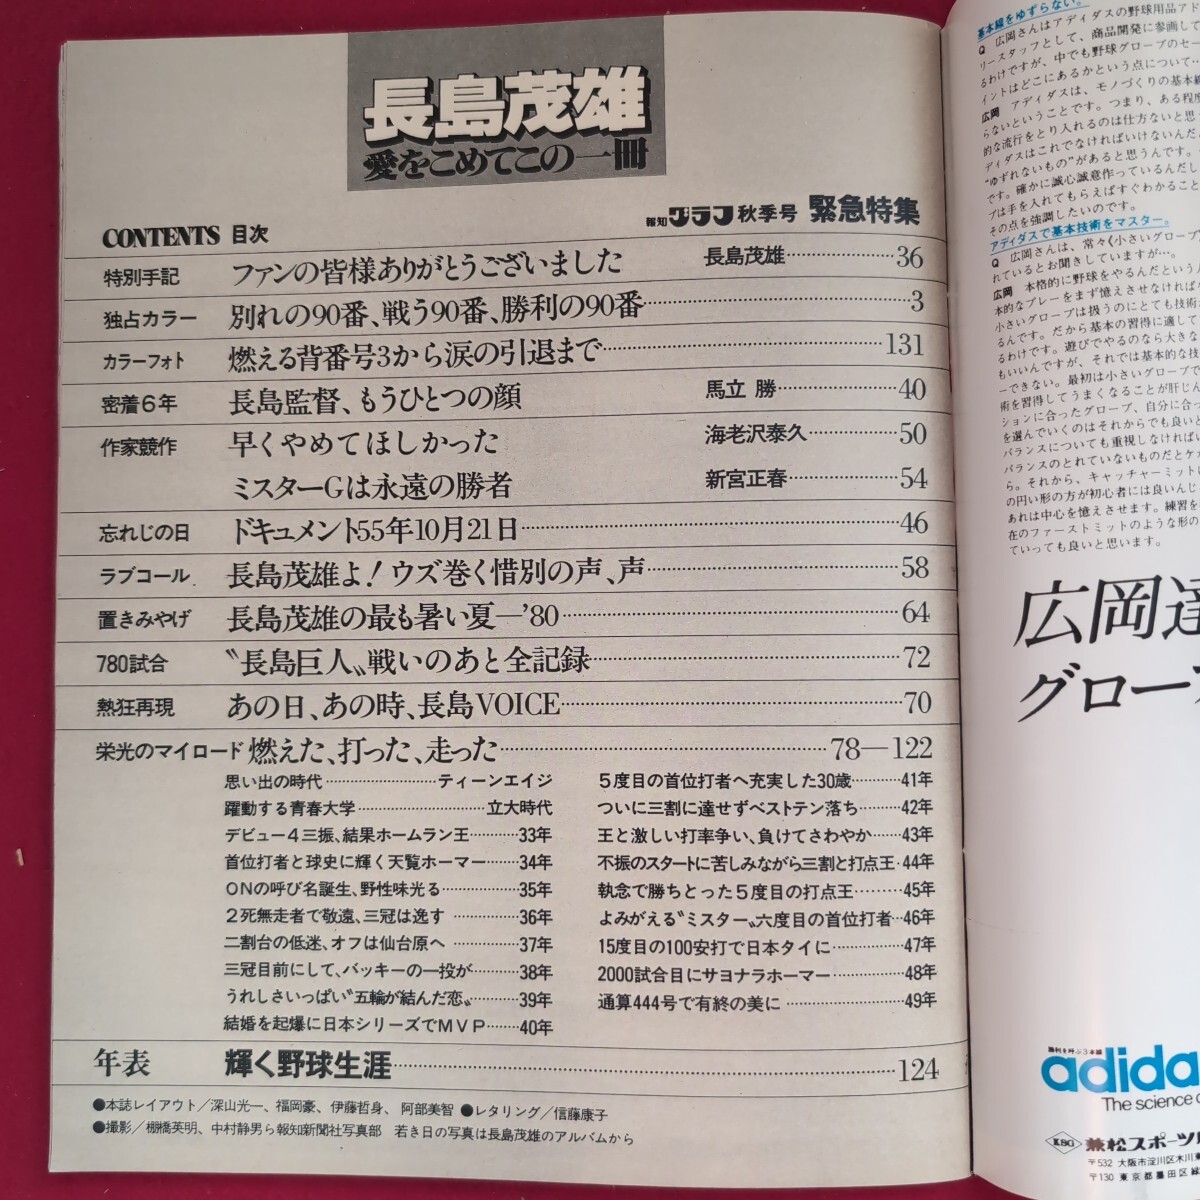 長島茂雄
愛をこめてこの一冊
報知グラフ秋季号 緊急特集
CONTENTS 目次
特別手記 ファンの皆様ありがとうございました 長島茂雄……………36
独占カラー 別れの90番、戦う90番、勝利の90番……………3
カラーフォト 燃える背番号3から涙の引退まで……………131
密着6年 長島監督、もうひとつの顔 馬立 勝……………40
作家競作 早くやめてほしかった 海老沢泰久……………50
ミスターGは永遠の勝者 新宮正春……………54
忘れじの日 ドキュメント55年10月21日……………46
ラブコール 長島茂雄よ！ウズ巻く惜別の声、声……………58
置きみやげ 長島茂雄の最も暑い夏―'80……………64
780試合 〝長島巨人〟戦いのあと全記録……………72
熱狂再現 あの日、あの時、長島VOICE……………70
栄光のマイロード 燃えた、打った、走った……………78―122
思い出の時代……………ティーンエイジ
躍動する青春大学……………立大時代
デビュー4三振、結果ホームラン王………33年
首位打者と球史に輝く天覧ホーマー………34年
ONの呼び名誕生、野性味光る……………35年
2死無走者で敬遠、三冠は逸す……………36年
二割台の低迷、オフは仙台原へ……………37年
三冠目前にして、バッキーの一投が………38年
うれしさいっぱい〝五輪が結んだ恋〟………39年
結婚を起爆に日本シリーズでMVP………40年
5度目の首位打者へ充実した30歳………41年
ついに三割に達せずベストテン落ち………42年
王と激しい打率争い、負けてさわやか……43年
不振のスタートに苦しみながら三割と打点王・44年
執念で勝ちとった5度目の打点王………45年
よみがえる〝ミスター〟六度目の首位打者…46年
15度目の100安打で日本タイに…………47年
2000試合目にサヨナラホーマー…………48年
通算444号で有終の美に……………49年
年表 輝く野球生涯……………124
●本誌レイアウト／深山光一、福岡豪、伊藤哲身、阿部美智 ●レタリング／信藤康子
●撮影／棚橋英明、中村静男ら報知新聞社写真部 若き日の写真は長島茂雄のアルバムから
基本線をゆずらない。
Q 広岡さんはアディダスの野球用品アド
リースタッフとして、商品開発に参画して
るわけですが、中でも野球グローブのセー
イントはどこにあるかという点について…
広岡 アディダスは、モノづくりの基本線
らないということです。つまり、ある程度
的な流行をとり入れるのは仕方ないと思
ディダスはこれでなければいけないんだ
"ゆずれないもの"があると思うんです。
です。確かに誠心誠意作っているんだし
ブは手を入れてもらえばすぐわかること
その点を強調したいのです。
アディダスで基本技術をマスター。
Q 広岡さんは、常々《小さいグローブ
れているとお聞きしていますが…。
広岡 本格的に野球をやるんだという人
本的なプレーをまず憶えさせなければ
小さいグローブは扱うのにとても技術
るんです。だから基本の習得に適して
るわけです。遊びでやるのなら大きな
もいいんですが、それでは基本的な技
ーできない。最初は小さいグローブで
術を習得してうまくなることが肝じん
ションに合ったグローブ、自分に合っ
を選んでいくのはそれからでも良いと
バランスについても重視しなければい
バランスのとれていないものだとケガ
ら。それから、キャッチャーミットは
の円い形の方が初心者には良いんじ
あれは中心を憶えさせます。練習を
在のファーストミットのような形の
ていっても良いと思います。
広岡達
グローブ
勝利を呼ぶ3本線
adida
The science o
KSG 兼松スポーツ
〒532 大阪市淀川区木川東
〒130 東京都墨田区緑